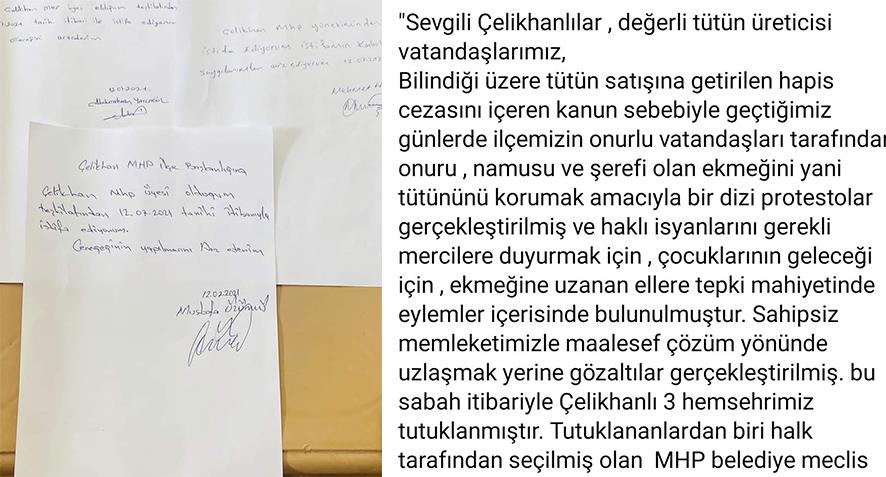 Çelikhan MHP üyesi olduğum teşkilatından
tarih itibari ile istifa ediyorum
12.07.2021
Çelikhan Mhp yönetiminden
istifa ediyorum istifamın kabulü
saygılarımla arz ediyorum 12.07.2021
Mehmet
Çelikhan MHP ilçe Başkanlığına
Çelikhan Mhp üyesi olduğum
teşkilatından 12.07.2021 tarihi itibarıyla
istifa ediyorum.
Gereğeginin yapılmasını Arz ederim
12.07.2021
Mustafa
"Sevgili Çelikhanlılar , değerli tütün üreticisi
vatandaşlarımız,
Bilindiği üzere tütün satışına getirilen hapis
cezasını içeren kanun sebebiyle geçtiğimiz
günlerde ilçemizin onurlu vatandaşları tarafından
onuru , namusu ve şerefi olan ekmeğini yani
tütününü korumak amacıyla bir dizi protestolar
gerçekleştirilmiş ve haklı isyanlarını gerekli
mercilere duyurmak için , çocuklarının geleceği
için , ekmeğine uzanan ellere tepki mahiyetinde
eylemler içerisinde bulunulmuştur. Sahipsiz
memleketimizle maalesef çözüm yönünde
uzlaşmak yerine gözaltılar gerçekleştirilmiş. bu
sabah itibariyle Çelikhanlı 3 hemsehrimiz
tutuklanmıştır. Tutuklananlardan biri halk
tarafından seçilmiş olan MHP belediye meclis